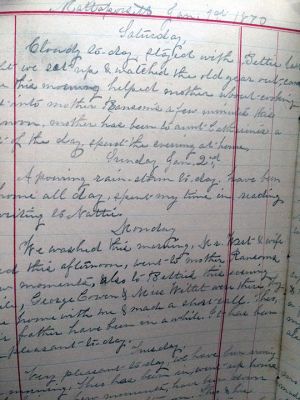 Jan. 1st 1870
Saturday,
Cloudy to-day, stayed with Bettie last
we set up & watched the old year out, came
this morning, helped mother about cooking
into mother Ransom's a few minutes this
noon, mother has been to aunt Catharine's a
of the day, spent the evening at home,
Sunday Jan. 2nd
A pouring rain-storm to-day, have been
home all day, spent my time in reading
writing to Nattie.
Monday
We washed this morning, & wife
this afternoon, went to mother Ransoms
few moments, also to Betties this evening
George Cowen & Miss were there, they
home with me & made a short call. This,
father have been in a while. It has been
pleasant to-day.
Tuesday.
Very pleasant to-day, we have been
morning. This has been in
few moments, have been down
This & she